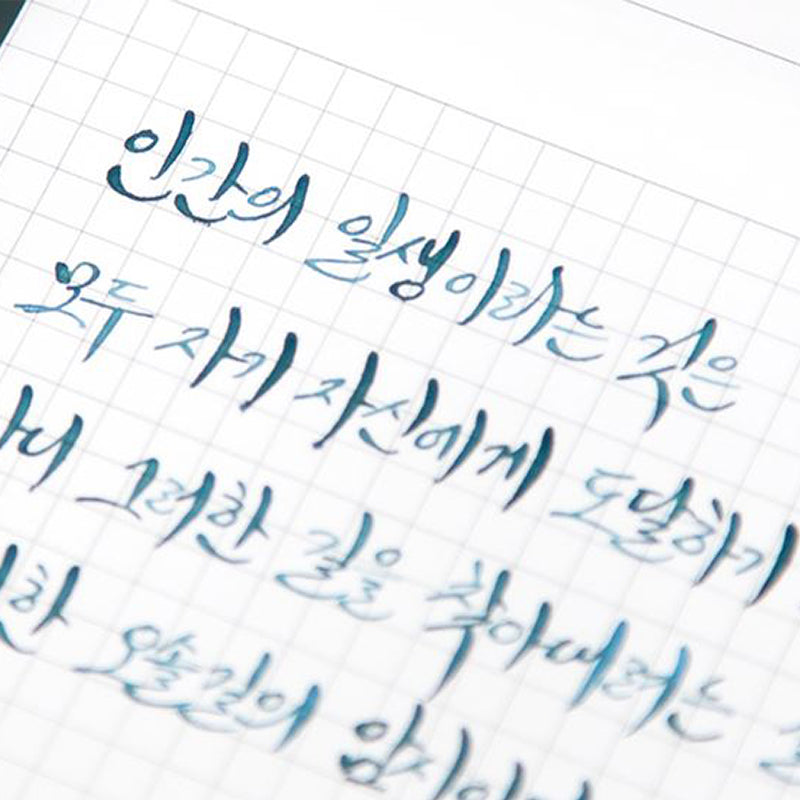 인간의 일생이라는 것은
모두 자기 자신에게 도달하기
그러한 길을 찾아내려는
오솔길의 암시이